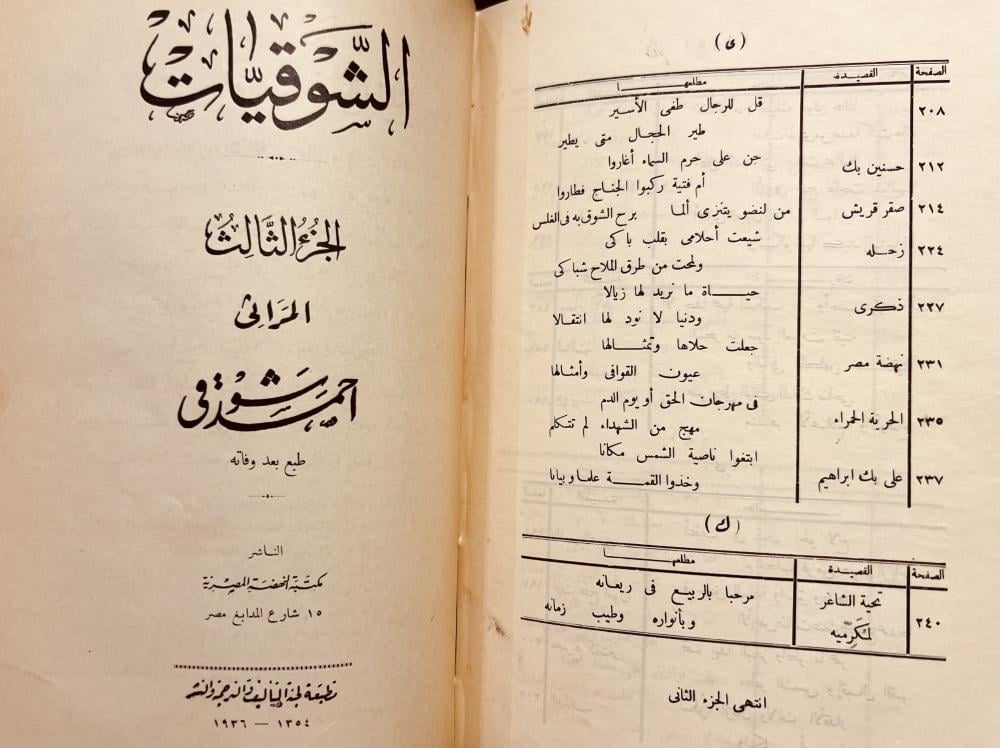 (ى)
الصفحة القصيدة مطلعها
٢٠٨ قل للرجال طغى الأسير
طير الحجال متى يطير
٢١٢ حسنين بك جن على حرم السماء أغاروا
أم فتية ركبوا الجناح فطاروا
٢١٤ صقر قريش من لنضو يتنزى ألما برح الشوق به فى الغلس
٢٢٤ زحله شيعت أحلامى بقلب باكى
ولمحت من طرق الملاح شباكى
٢٢٧ ذكرى حياة ما نريد لها زيالا
ودنيا لا نود لها انتقالا
٢٣١ نهضة مصر جعلت حلاها وتمثالها
عيون القوافى وأمثالها
٢٣٥ الحرية الحمراء فى مهرجان الحق أو يوم الدم
مهج من الشهداء لم تتكلم
٢٣٧ على بك ابراهيم ابتغوا ناصية الشمس مكانا
وخذوا القمة علما وبيانا
(ك)
الصفحة القصيدة مطلعها
٢٤٠ تحية الشاعر مرحبا بالربيع فى ريعانه
لمكرّميه وبأنواره وطيب زمانه
انتهى الجزء الثانى
الشَّوقيَّات
الجزءُ الثَّالِثُ
المَرَاثى
احمد شوقى
طبع بعد وفاته
الناشر
مكتبة النهضة المصرية
١٥ شارع المدابغ مصر
مطبعة لجنة التأليف والترجمة والنشر
١٣٥٤ — ١٩٣٦